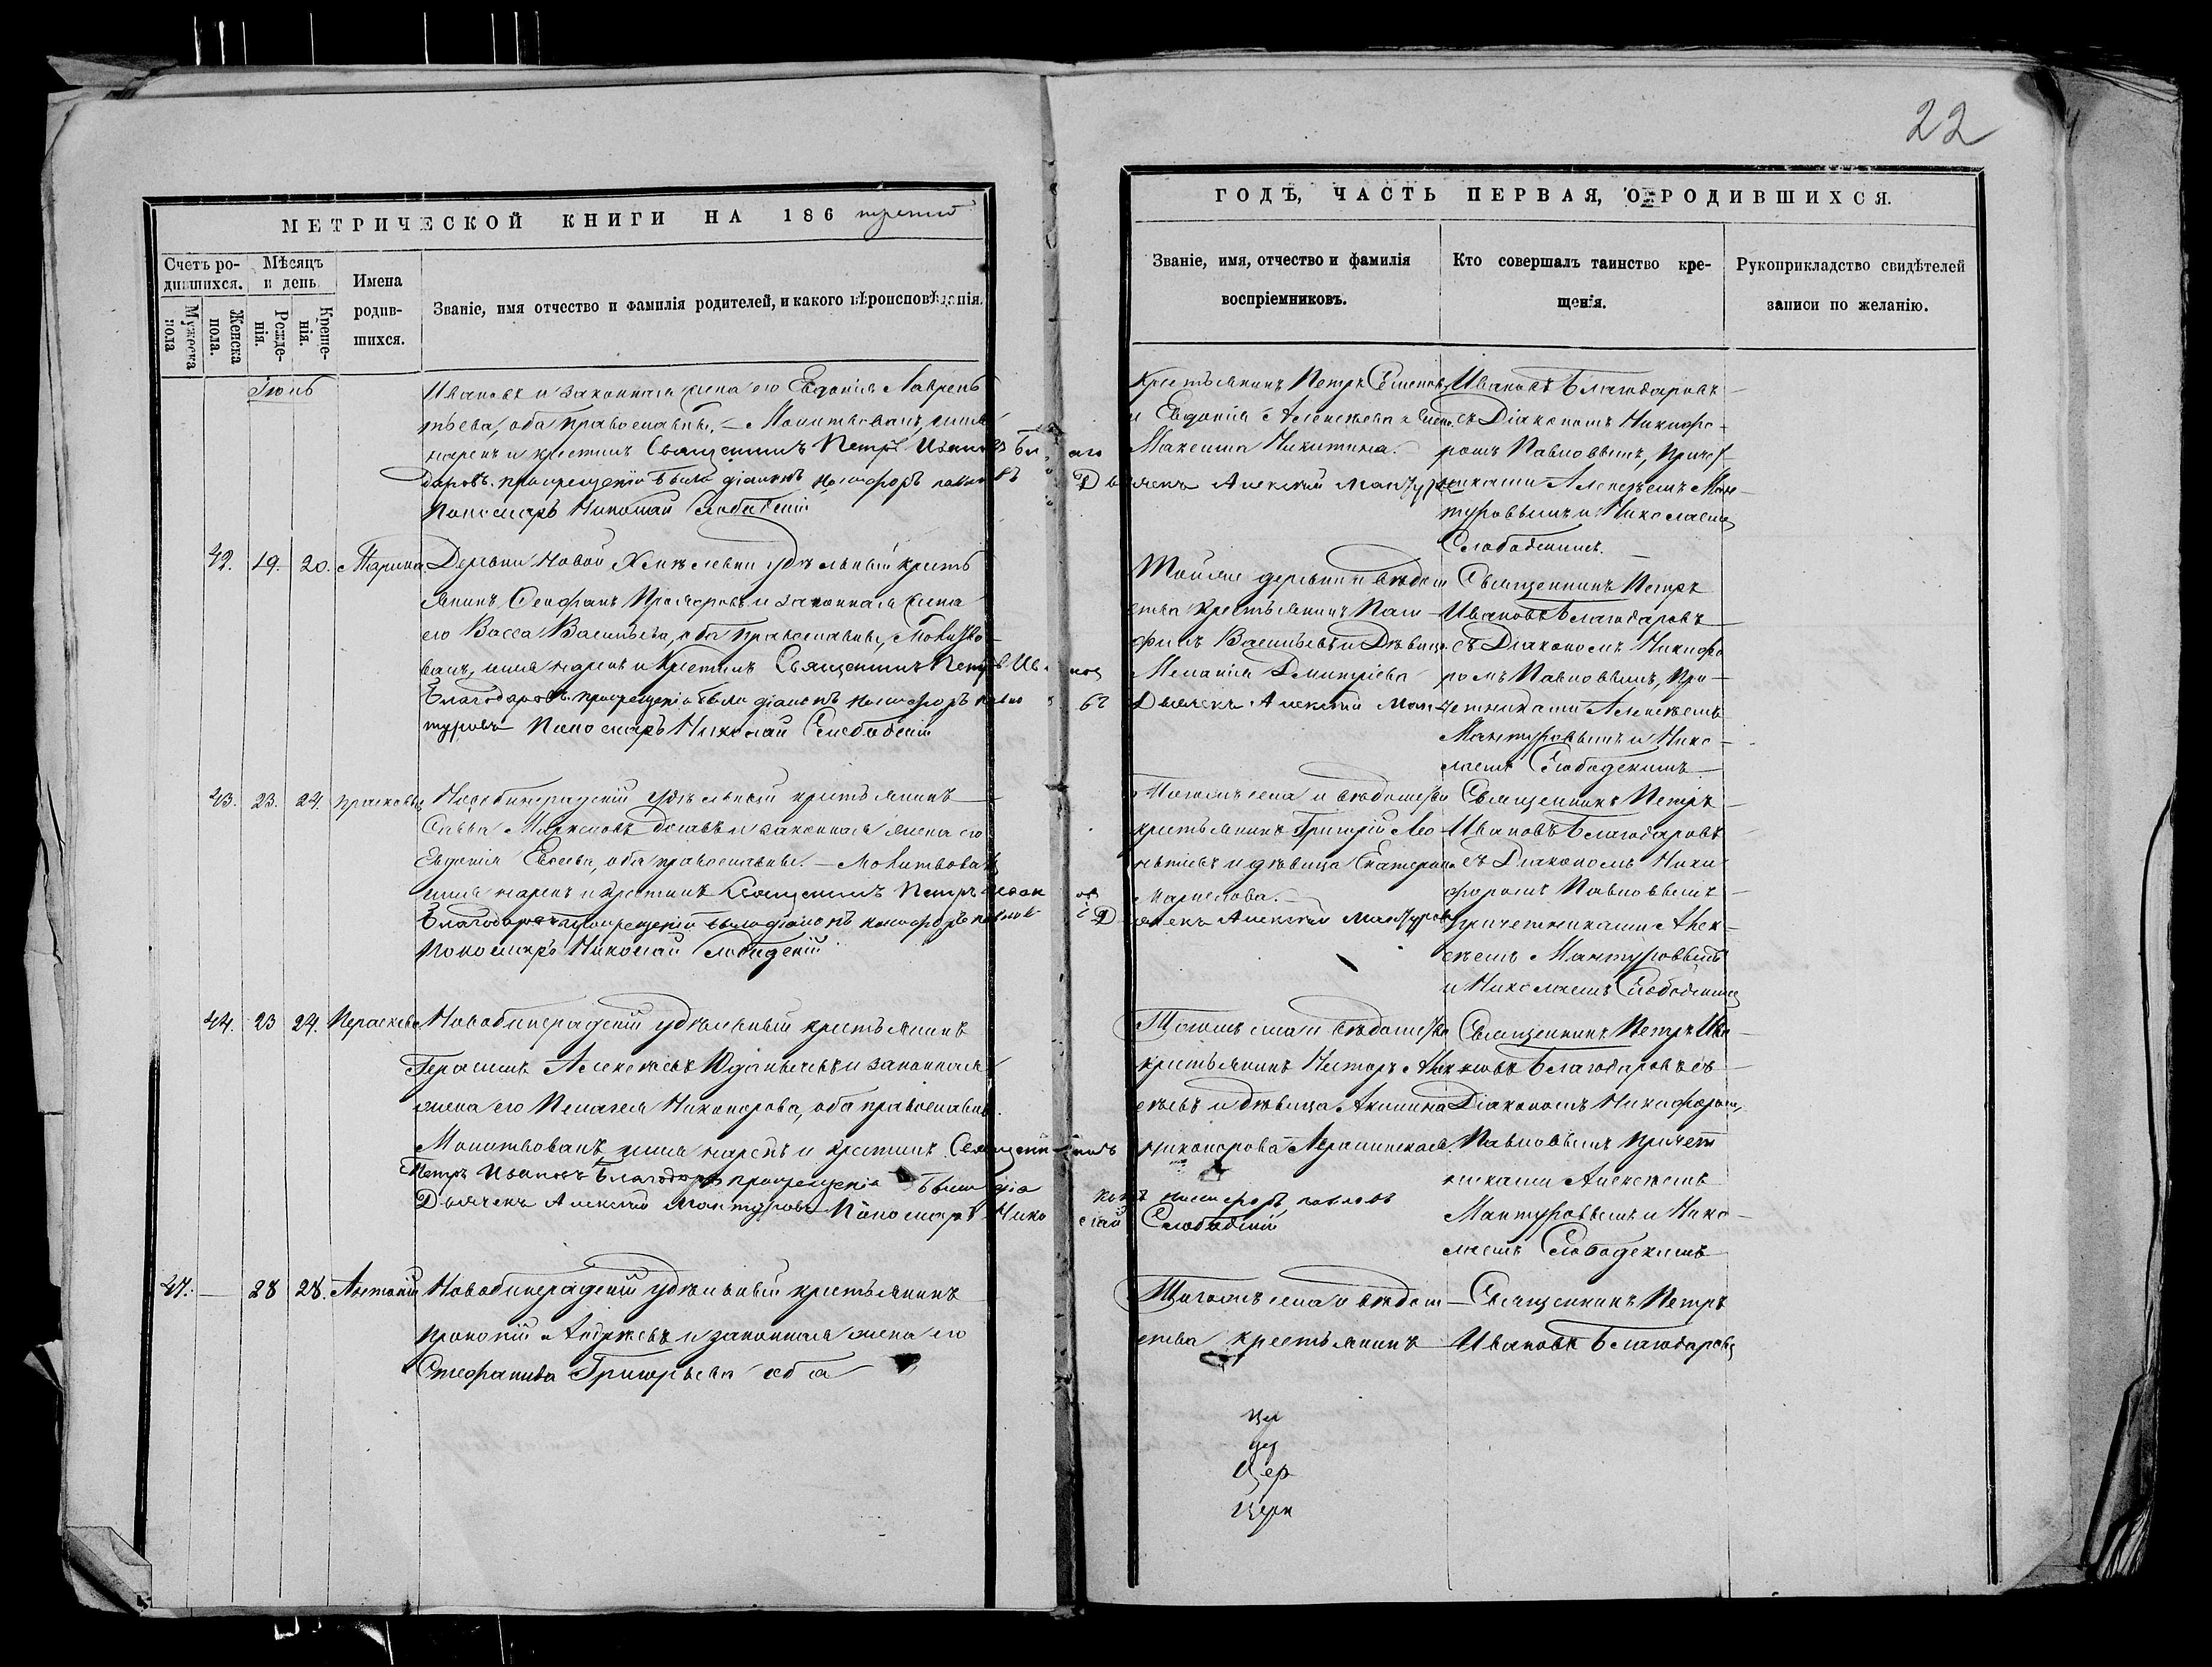 22
МЕТРИЧЕСКОЙ КНИГИ НА 186 третій
ГОДЪ, ЧАСТЬ ПЕРВАЯ, О РОДИВШИХСЯ.
Счетъ ро-
дившихся.
Мужеска
пола
Женска
пола.
Мѣсяцъ
и день.
Рожде-
нія.
Креще-
нія.
Имена
родив-
шихся.
Званіе, имя отчество и фамилія родителей, и какого вѣроисповѣданія.
Званіе, имя, отчество и фамилія
воспріемниковъ.
Кто совершалъ таинство кре-
щенія.
Рукоприкладство свидѣтелей
записи по желанію.
Іюнь
Ивановъ и законная жена его Евдокія Лаврень
тьева, оба православные. — Молитвовалъ, имя
нарекъ и крестилъ Священникъ Петръ Ивановъ Благо
даровъ. при крещеніи были діаконъ Никифоръ Павловъ Дьячекъ Алексѣй Мантуровъ
Пономарь Николай Слободскій
Крестьянинъ Петръ Семеновъ
и Евдокія Алексѣева
Максима Никитина.
Ивановъ Благодаровъ
съ Діакономъ Никифо-
ромъ Павловымъ, Причет
никами Алексѣемъ Ман-
туровымъ и Николаемъ
Слободскимъ.
42. 19. 20. Марина
Деревни Новой удѣльный кресть
янинъ Феофанъ и законная жена
его Васса Васильева, оба православные, Молитво-
валъ, имя нарекъ и крестилъ Священникъ Петръ Ивановъ
Благодаровъ. при крещеніи были діаконъ Никифоръ Павловъ Дьячекъ Алексѣй Ман-
туровъ Пономарь Николай Слободскій
Той же деревни и вѣдом
ства крестьянинъ Пам
филъ Васильевъ и Дѣвица
Меланія Дмитріева
Священникъ Петръ
Ивановъ Благодаровъ
съ Діакономъ Никифо
ромъ Павловымъ, При-
четниками Алексѣемъ
Мантуровымъ и Нико-
лаемъ Слободскимъ
43. 23. 24. Прасковья
удѣльный крестьянинъ
Савва и законная жена его
Евдокія Евсеева, оба православные. — Молитвовалъ
имя нарекъ и крестилъ Священникъ Петръ Ивановъ
Благодаровъ при крещеніи были діаконъ Никифоръ Павловъ Дьячекъ Алексѣй Мантуровъ
Пономарь Николай Слободскій
Тогожъ села и вѣдомства
крестьянинъ Григорій Лео
нтіевъ и дѣвица Екатерина
Священникъ Петръ
Ивановъ Благодаровъ
съ Діакономъ Ники
форомъ Павловымъ
причетниками Алек-
сѣемъ Мантуровымъ
и Николаемъ Слободскимъ
44. 23 24. Параскева
удѣльный крестьянинъ
Герасимъ Алексѣевъ и законная
жена его Пелагея Никонорова, оба православные.
Молитвовалъ имя нарекъ и крестилъ Священникъ
Петръ Ивановъ Благодаровъ при крещеніи были діаконъ Никифоръ Павловъ
Дьячекъ Алексѣй Мантуровъ Пономарь Николай Слободскій
Тогожъ села и вѣдомства
крестьянинъ Несторъ Алек
сѣевъ и дѣвица Акилина
Никонорова
Священникъ Петръ Ива
новъ Благодаровъ съ
Діакономъ Никифоромъ
Павловымъ Причет
никами Алексѣемъ
Мантуровымъ и Нико-
лаемъ Слободскимъ
47. — 28 28. Антоній
удѣльный крестьянинъ
Прокопій Андреевъ и законная жена его
Стефанида Григорьева оба
Тогожъ села и вѣдом
ства крестьянинъ
Священникъ Петръ
Ивановъ Благодаровъ
Цер